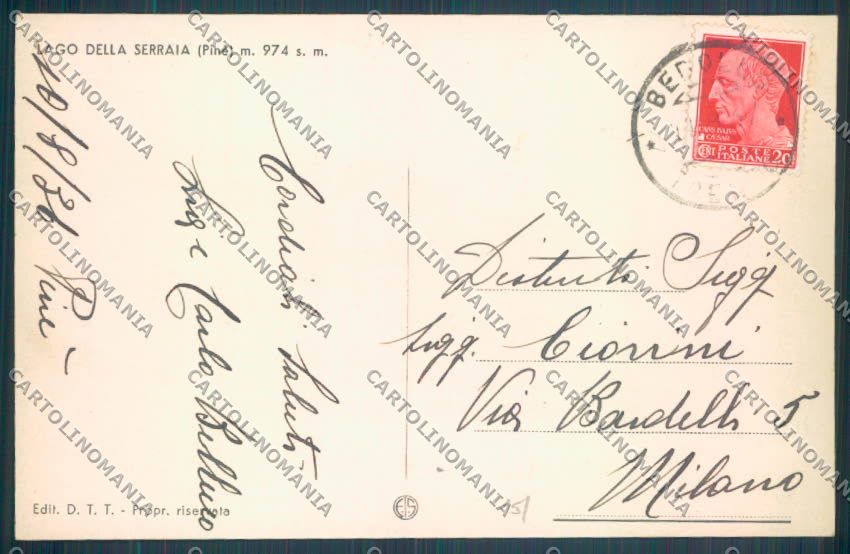 LAGO DELLA SERRAIA (Pinè) m. 974 s. m.
10/8/
Pinè
Cordiali Saluti
Luigi e Carlo
Edit. D. T. T. - Propr. riservata
BEDO
CAIVS IVLIVS
CAESAR
CENT POSTE 20
ITALIANE
Distinti Sigg
Sigg. Ciorini
Via Bardelli 5
Milano
CARTOLINOMANIA